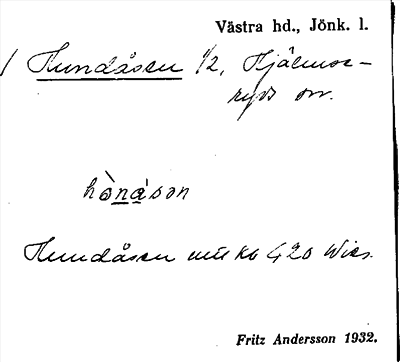 Västra hd., Jönk. l.
/ Hundåsen 1/2, Hjälmse-
ryds sn.
hònáson
Hundåsen mtl kb 420 Wies.
Fritz Andersson 1932.